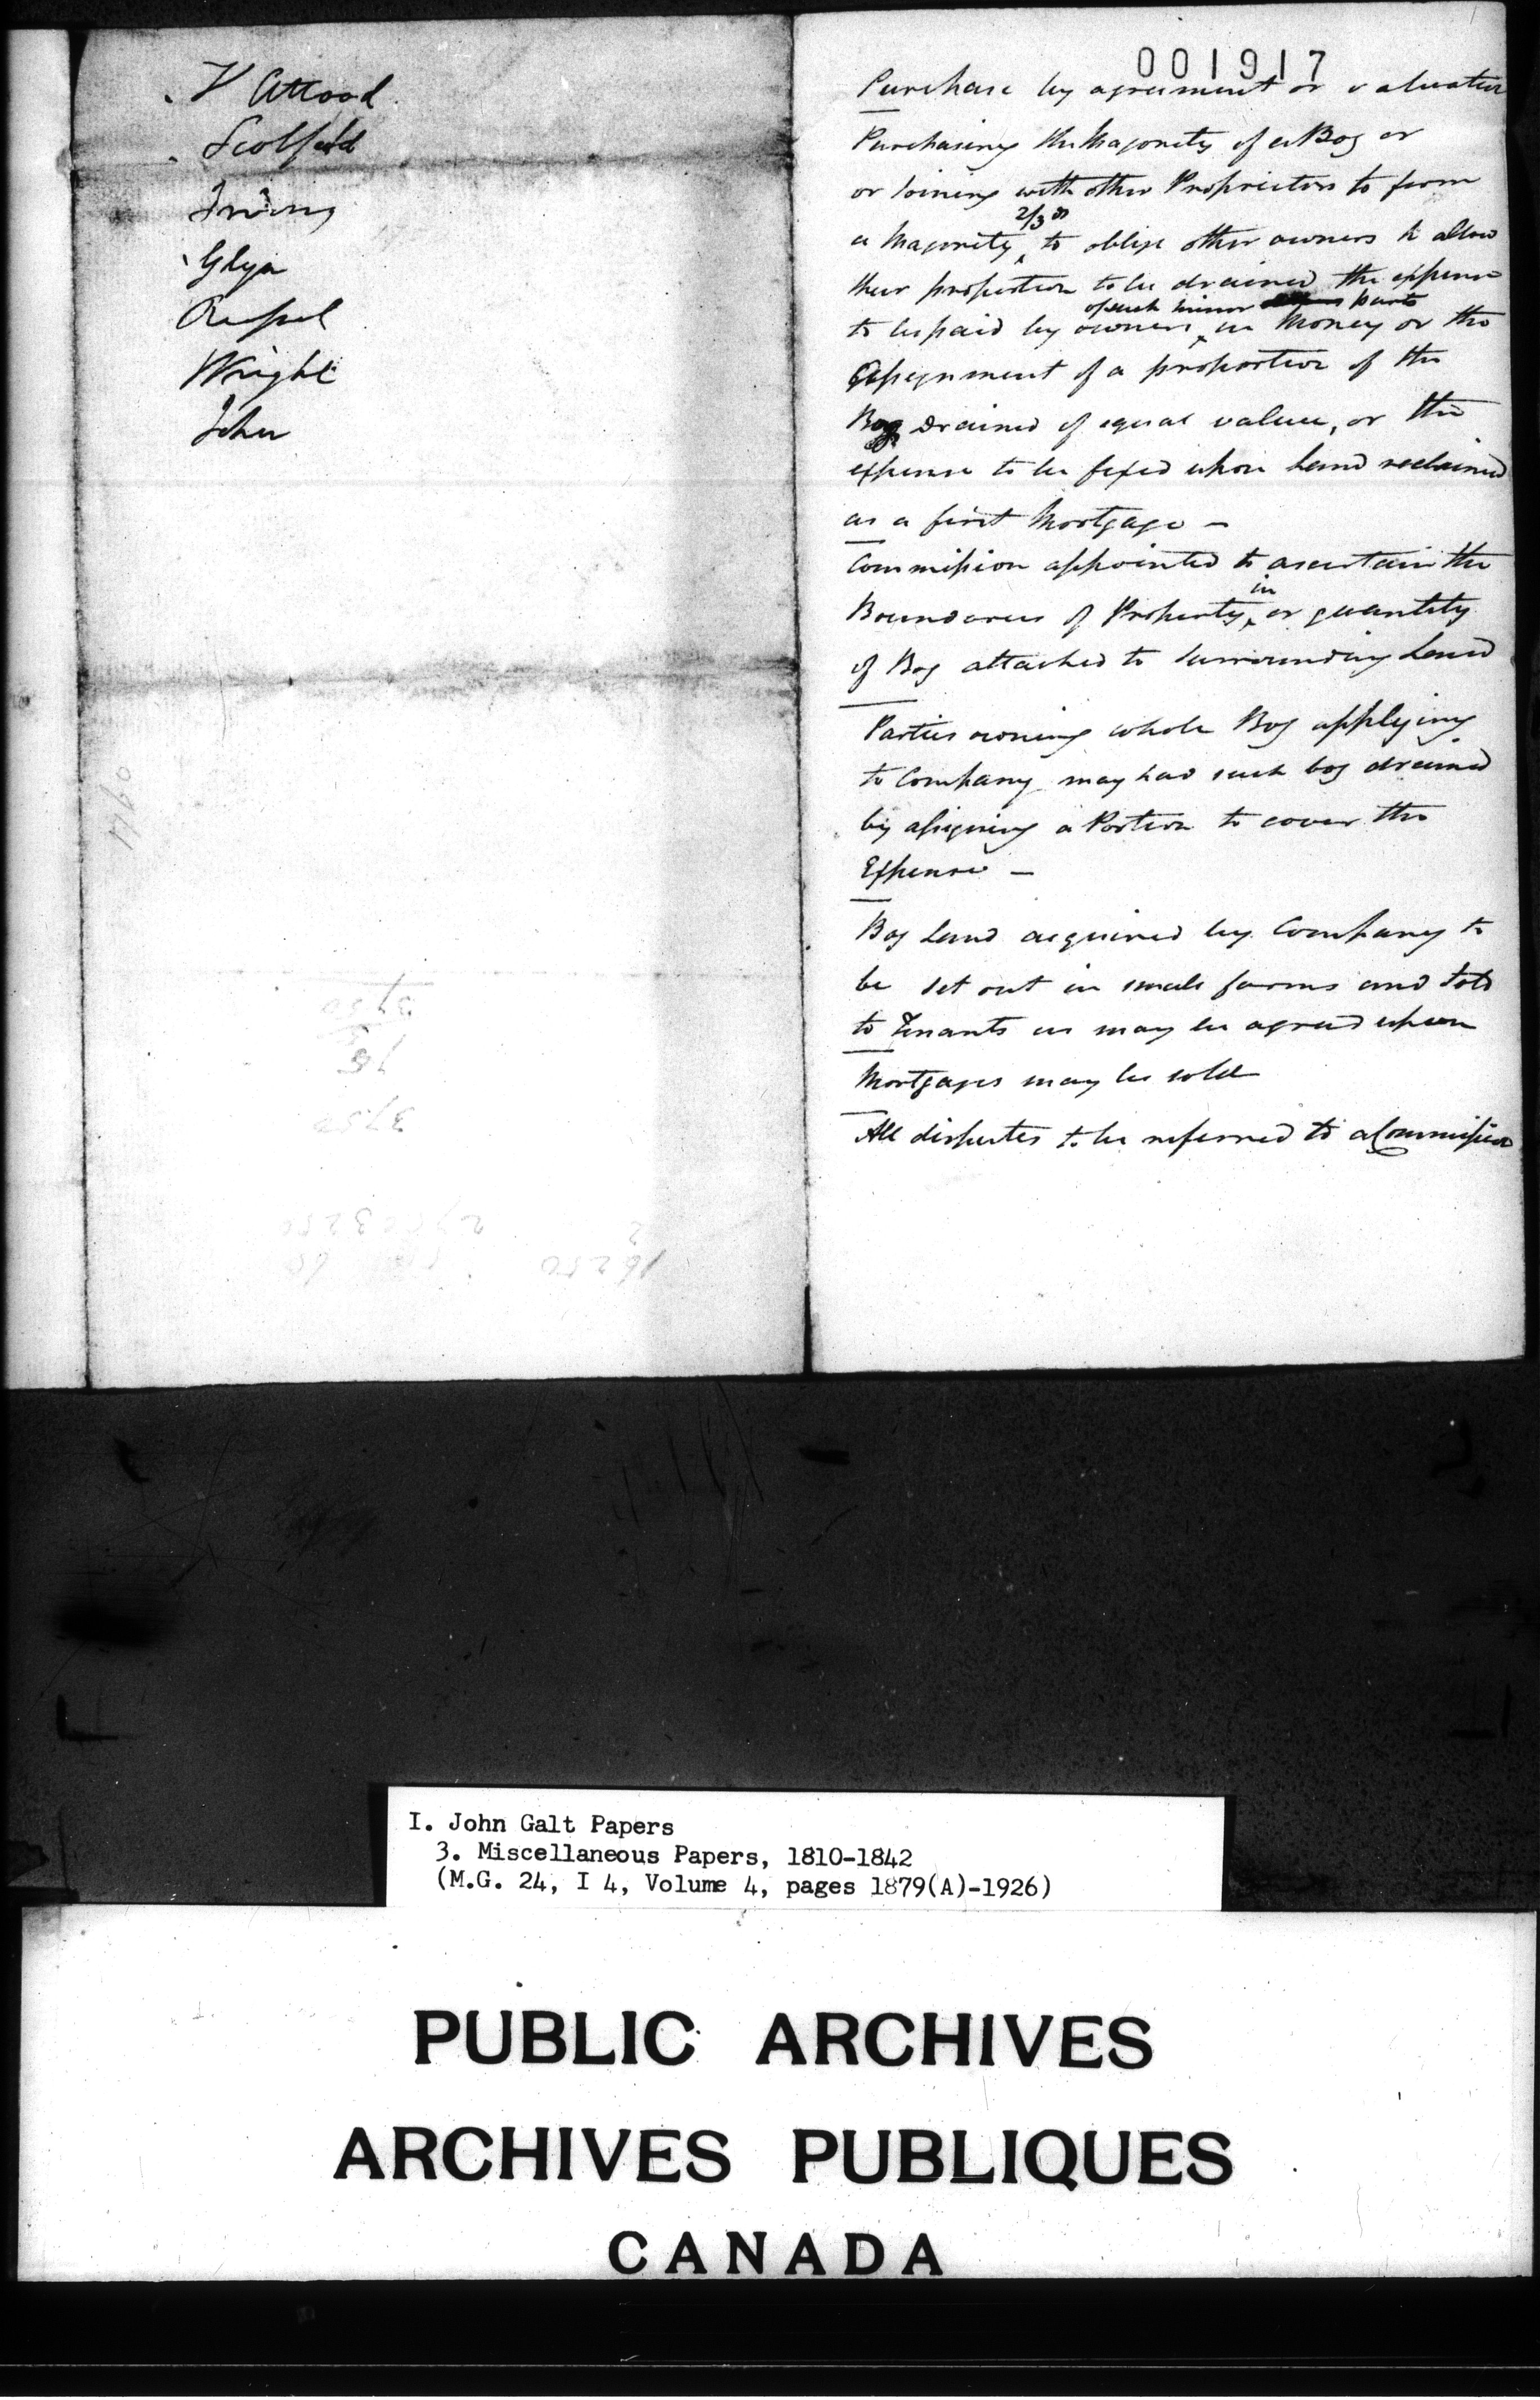 V Attood
Scolfield
Irving
Glyn
Russel
Wright
John
001917
Purchase by agreement or valuation
Purchasing the Majority of a Bog or
or Joining with other Proprietors to form
2/3ds
a Majority, to oblige other owners to allow
their proportion to be drained the expense
of such minor parts
to be paid by owners, in Money or the
Assignment of a proportion of the
Bog drained of equal value, or the
expense to be fixed upon Land reclaimed
as a first Mortgage —
Commission appointed to ascertain the
in
Boundaries of Property, or quantity
of Bog attached to surrounding Land
Parties owning whole Bog applying
to Company may have such bog drained
by assigning a Portion to cover the
Expense —
Bog Land acquired by Company to
be set out in small farms and sold
to Tenants as may be agreed upon
Mortgages may be sold
All disputes to be referred to a Commission
3750
3750
16250
I. John Galt Papers
3. Miscellaneous Papers, 1810-1842
(M.G. 24, I 4, Volume 4, pages 1879(A)-1926)
PUBLIC ARCHIVES
ARCHIVES PUBLIQUES
CANADA